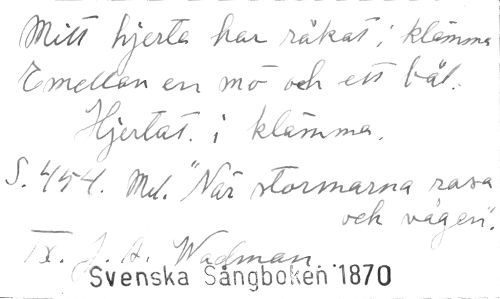 Mitt hjerta har råkat i klämma
Emellan en mö och ett bål.
Hjertat i klämma.
S. 454. Mel. "När stormarna rasa
och vågen".
Tx. J. A. Wadman.
Svenska Sångboken 1870